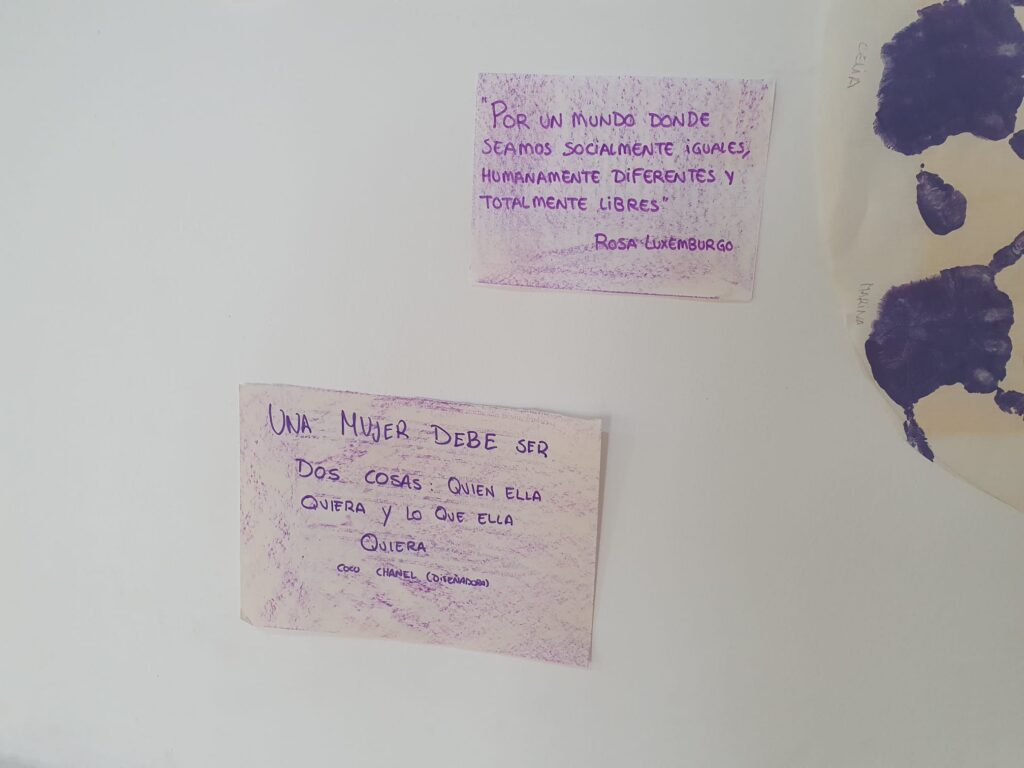 "POR UN MUNDO DONDE
SEAMOS SOCIALMENTE IGUALES,
HUMANAMENTE DIFERENTES Y
TOTALMENTE LIBRES"
ROSA LUXEMBURGO
UNA MUJER DEBE SER
DOS COSAS: QUIEN ELLA
QUIERA Y LO QUE ELLA
QUIERA
COCO CHANEL (DISEÑADORA)
MARINA